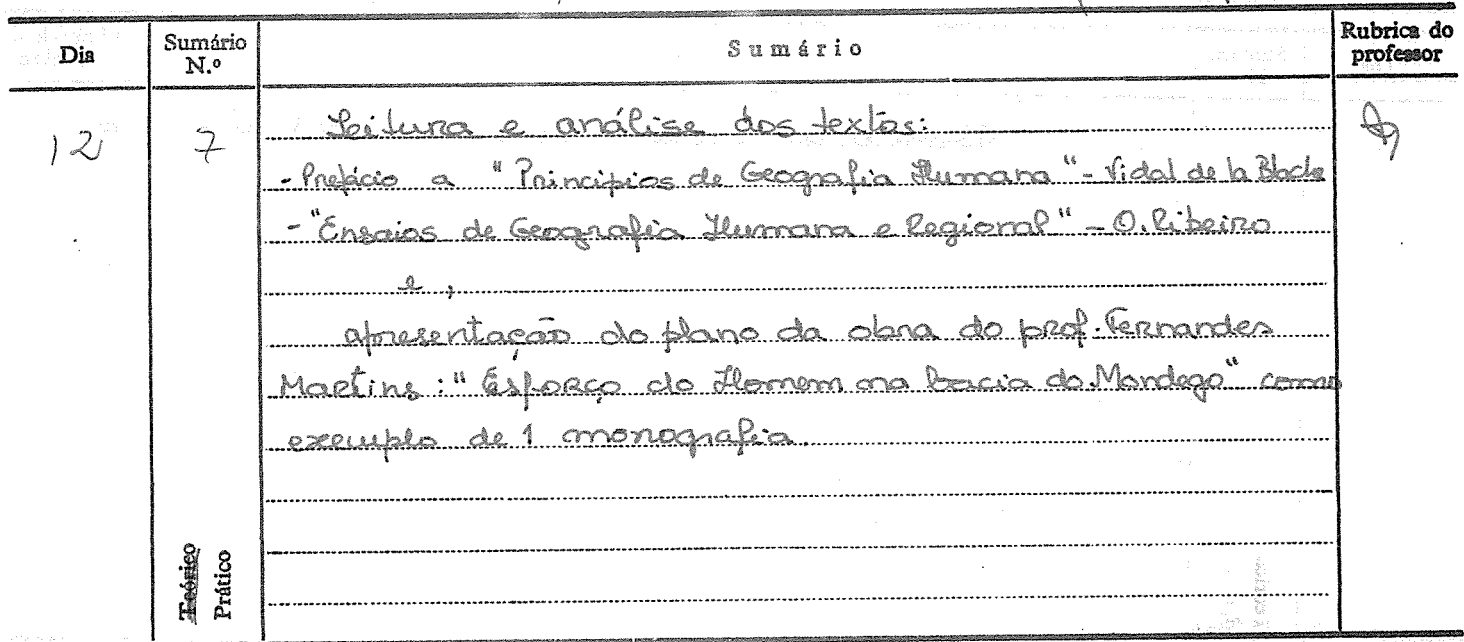 Dia Sumário N.º Sumário Rubrica do professor
12 7 Leitura e análise dos textos:
- Prefácio a "Princípios de Geografia Humana" - Vidal de la Blache
- "Ensaios de Geografia Humana e Regional" - O. Ribeiro
e,
apresentação do plano da obra do prof. Fernandes
Martins: "Esforço do Homem na bacia do Mondego" como
exemplo de 1 monografia.
Teórico
Prático